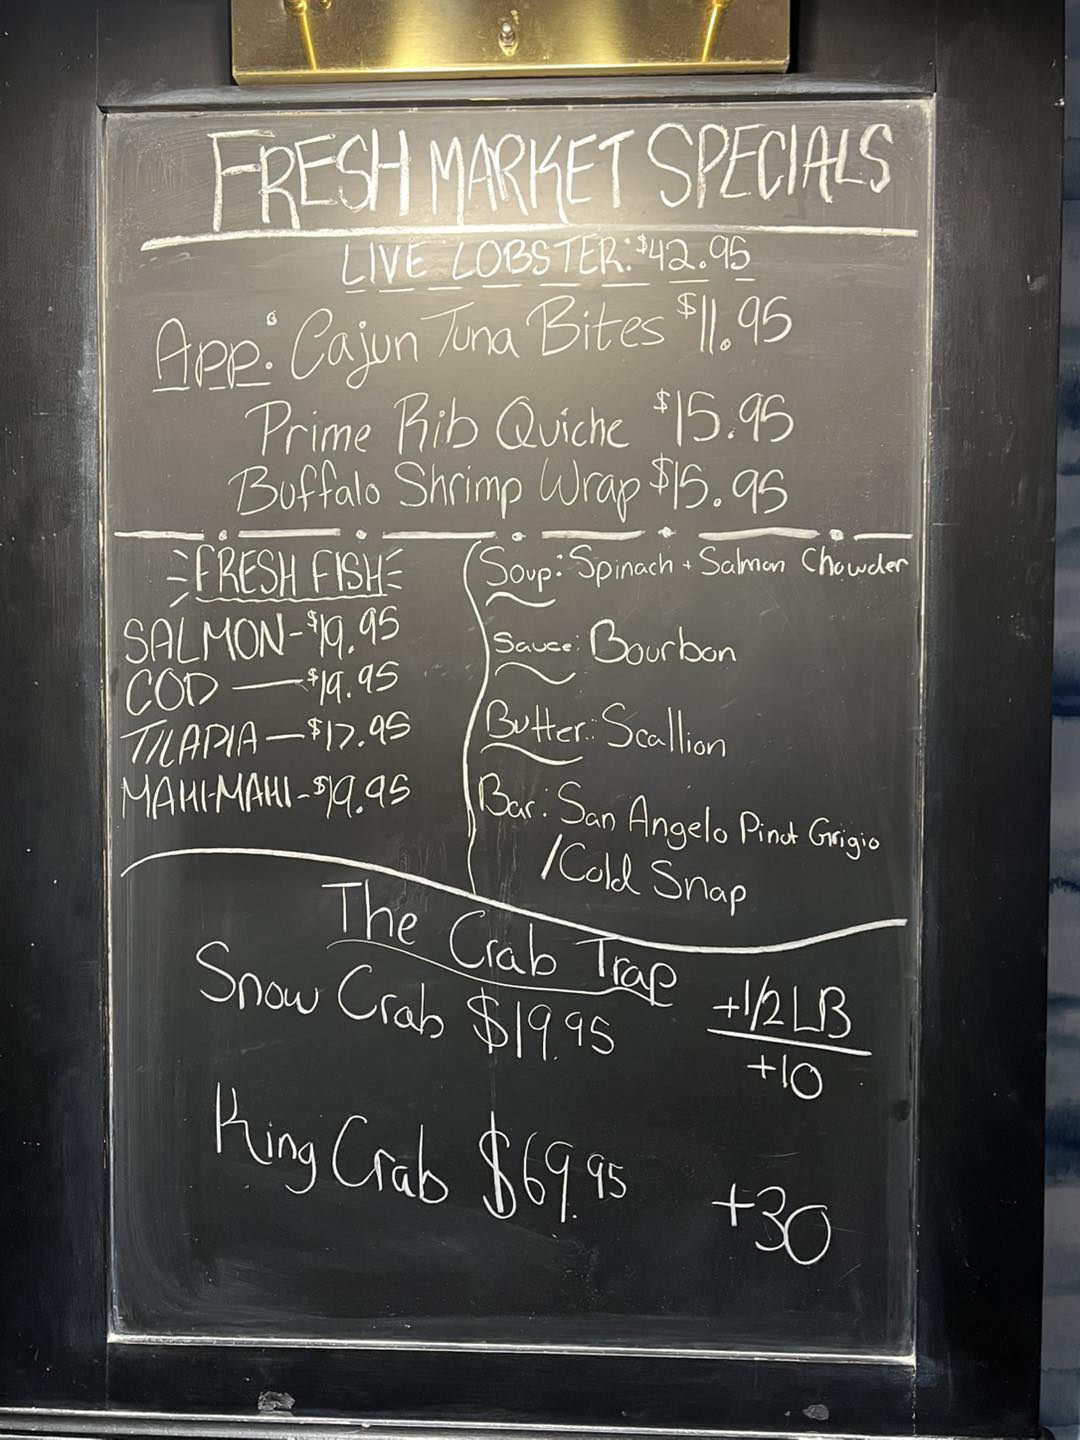 FRESH MARKET SPECIALS
LIVE LOBSTER: $42.95
App: Cajun Tuna Bites $11.95
Prime Rib Quiche $15.95
Buffalo Shrimp Wrap $15.95
FRESH FISH
SALMON-$19.95
COD — $19.95
TILAPIA — $17.95
MAHI-MAHI - $19.95
Soup: Spinach + Salmon Chowder
Sauce: Bourbon
Butter: Scallion
Bar: San Angelo Pinot Grigio
/Cold Snap
The Crab Trap
Snow Crab $19.95
+1/2 LB
+10
King Crab $69.95
+30